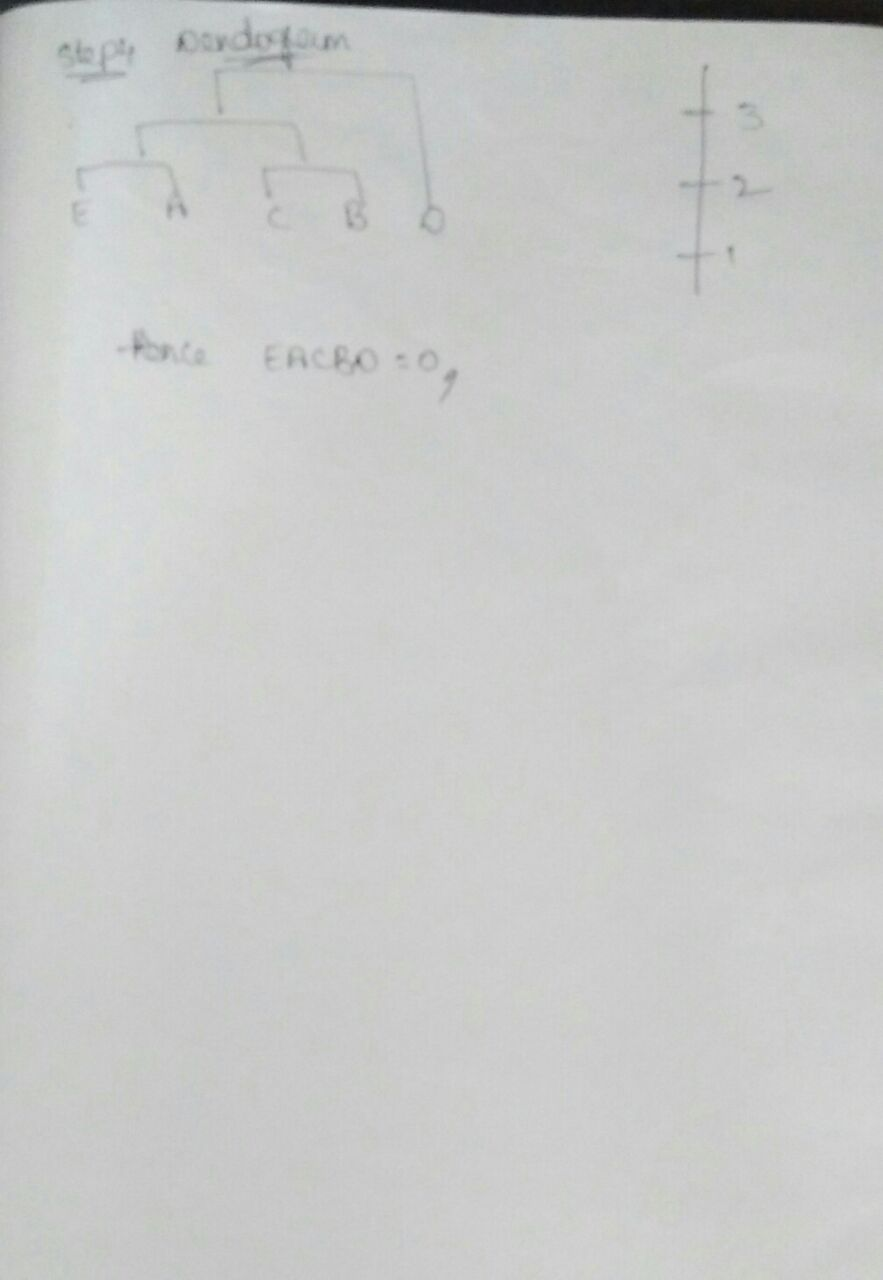 Step4 Dendogram
3
2
E A C B D
1
Hence EACBD = 0,